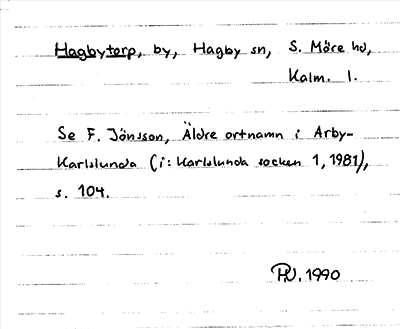 Hagbytorp, by, Hagby sn, S. Möre hd,
Kalm. l.
Se F. Jönsson, Äldre ortnamn i Arby-
Karlslunda (i: Karlslunda socken 1, 1981),
s. 104.
PU. 1990